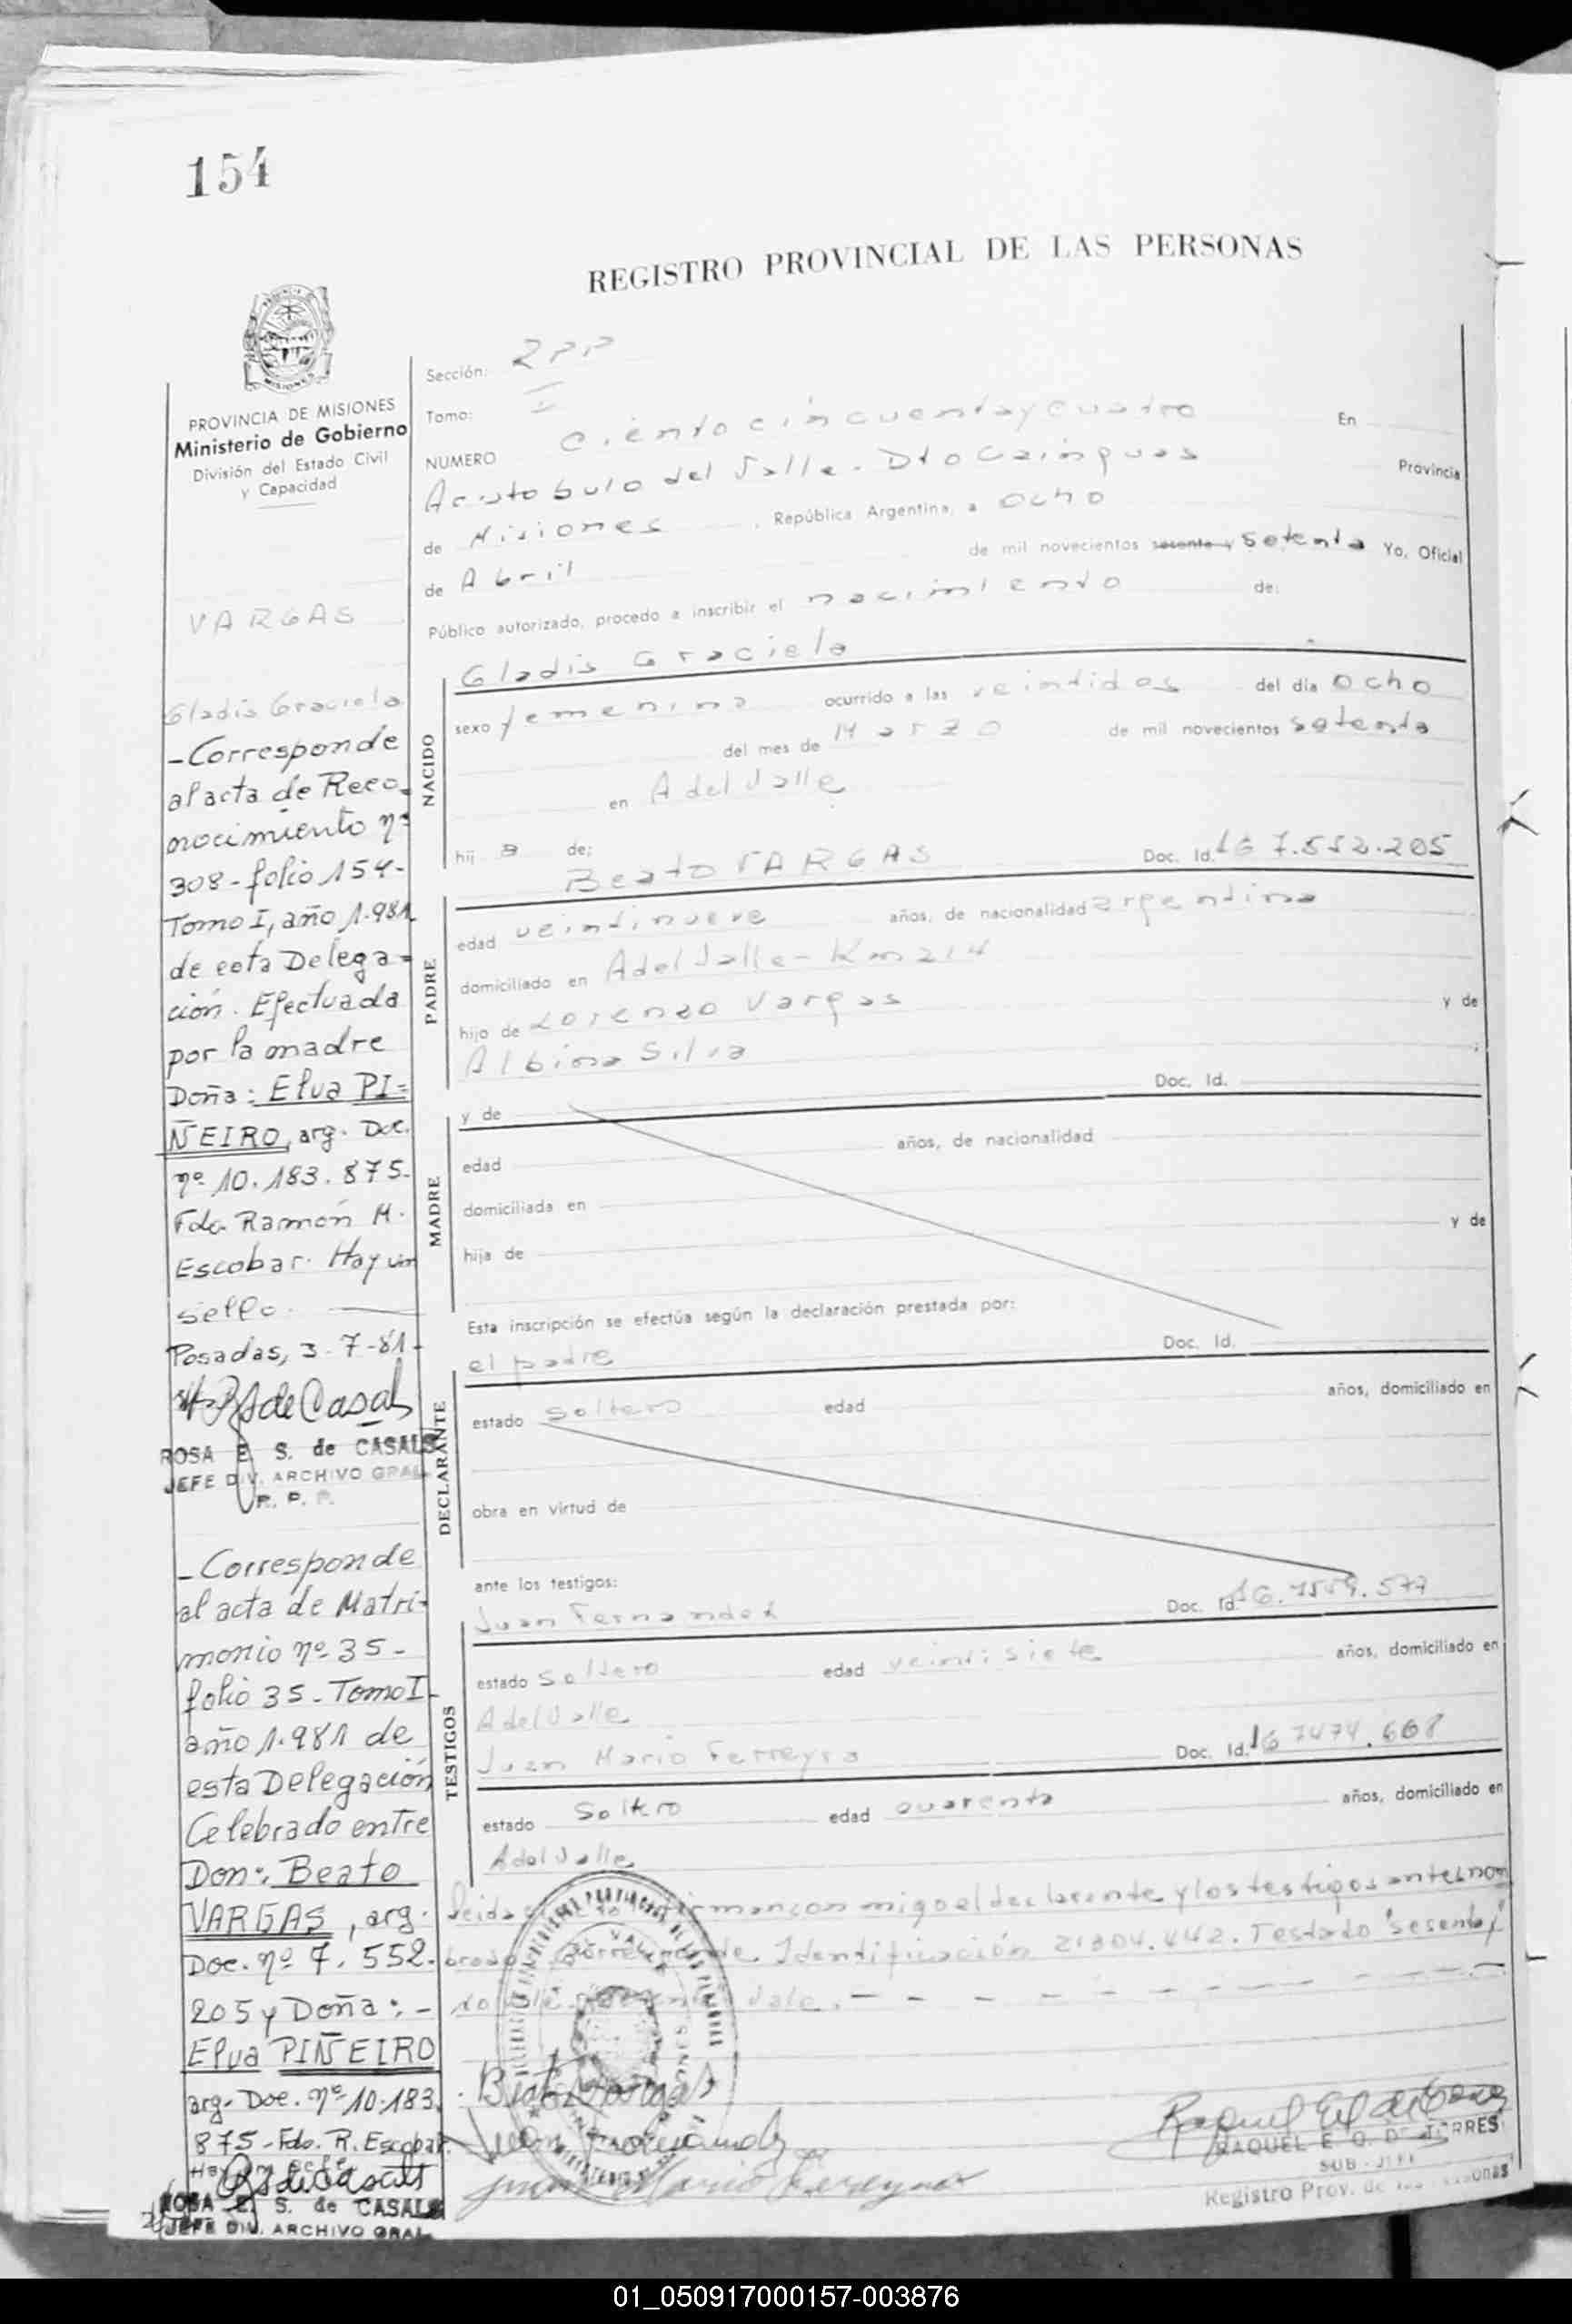 154
REGISTRO PROVINCIAL DE LAS PERSONAS
PROVINCIA DE MISIONES
Ministerio de Gobierno
División del Estado Civil
y Capacidad
VARGAS
Gladis Graciela
-Corresponde
al acta de Reco-
nocimiento nº
308-folio 154-
Tomo I, año 1.981
de esta Delega=
ción. Efectuada
por la madre
Doña: Elva PI=
ÑEIRO, arg. Doc.
nº 10.183.875-
Fdo. Ramón M.
Escobar. Hay un
sello.
Posadas, 3-7-81-
ROSA E. S. de CASALS
JEFE DIV. ARCHIVO GRAL.
R. P. P.
-Corresponde
al acta de Matri-
monio nº 35-
folio 35-Tomo I-
año 1.981 de
esta Delegación
Celebrado entre
Don: Beato
VARGAS, arg.
Doc. nº 7.552.
205 y Doña:-
Elva PIÑEIRO
arg. Doc. nº 10.183.
875-Fdo. R. Escobar.
ROSA E. S. de CASALS
JEFE DIV. ARCHIVO GRAL.
Sección:
Tomo: II
NUMERO Ciento cincuenta y cuatro En
Aristobulo del Valle. Dto Cainguas Provincia
de Misiones, República Argentina, a ocho
de Abril de mil novecientos sesenta y setenta Yo, Oficial
Público autorizado, procedo a inscribir el nacimiento de:
Gladis Graciela
NACIDO
sexo femenino ocurrido a las veintidos del día ocho
del mes de Marzo de mil novecientos setenta
en A del Valle
hij a de:
Beato VARGAS Doc. Id. 7.552.205
PADRE
edad veintinueve años, de nacionalidad argentina
domiciliado en A del Valle - Km 214
hijo de Lorenzo Vargas y de
Albina Silva
y de Doc. Id.
MADRE
edad años, de nacionalidad
domiciliada en
hija de y de
Esta inscripción se efectúa según la declaración prestada por:
el padre Doc. Id.
DECLARANTE
estado soltero edad años, domiciliado en
obra en virtud de
ante los testigos:
Juan Fernandez Doc. Id.
TESTIGOS
estado soltero edad veintisiete años, domiciliado en
A del Valle
Juan Mario Ferreyra Doc. Id. 7474.668
estado Soltero edad cuarenta años, domiciliado en
A del Valle
leida firman con migo el declarante y los testigos antes nom
brado Identificación 21304.442. Testado "sesenta y"
no vale. vale.
Beato Vargas
Juan Fernandez
Juan Mario Ferreyra
RAQUEL E. G. DE TORRES
SUB-JEFE
Registro Prov. de las Personas
01_050917000157-003876